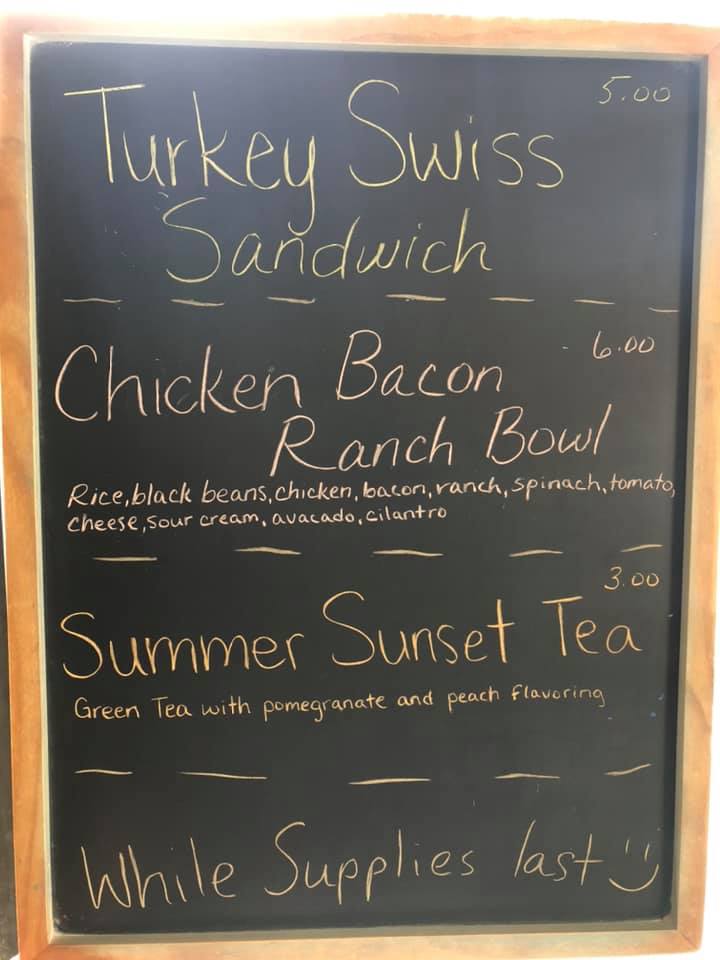 5.00
Turkey Swiss
Sandwich
6.00
Chicken Bacon
Ranch Bowl
Rice, black beans, chicken, bacon, ranch, spinach, tomato,
cheese, sour cream, avacado, cilantro
3.00
Summer Sunset Tea
Green Tea with pomegranate and peach flavoring
While Supplies last :)